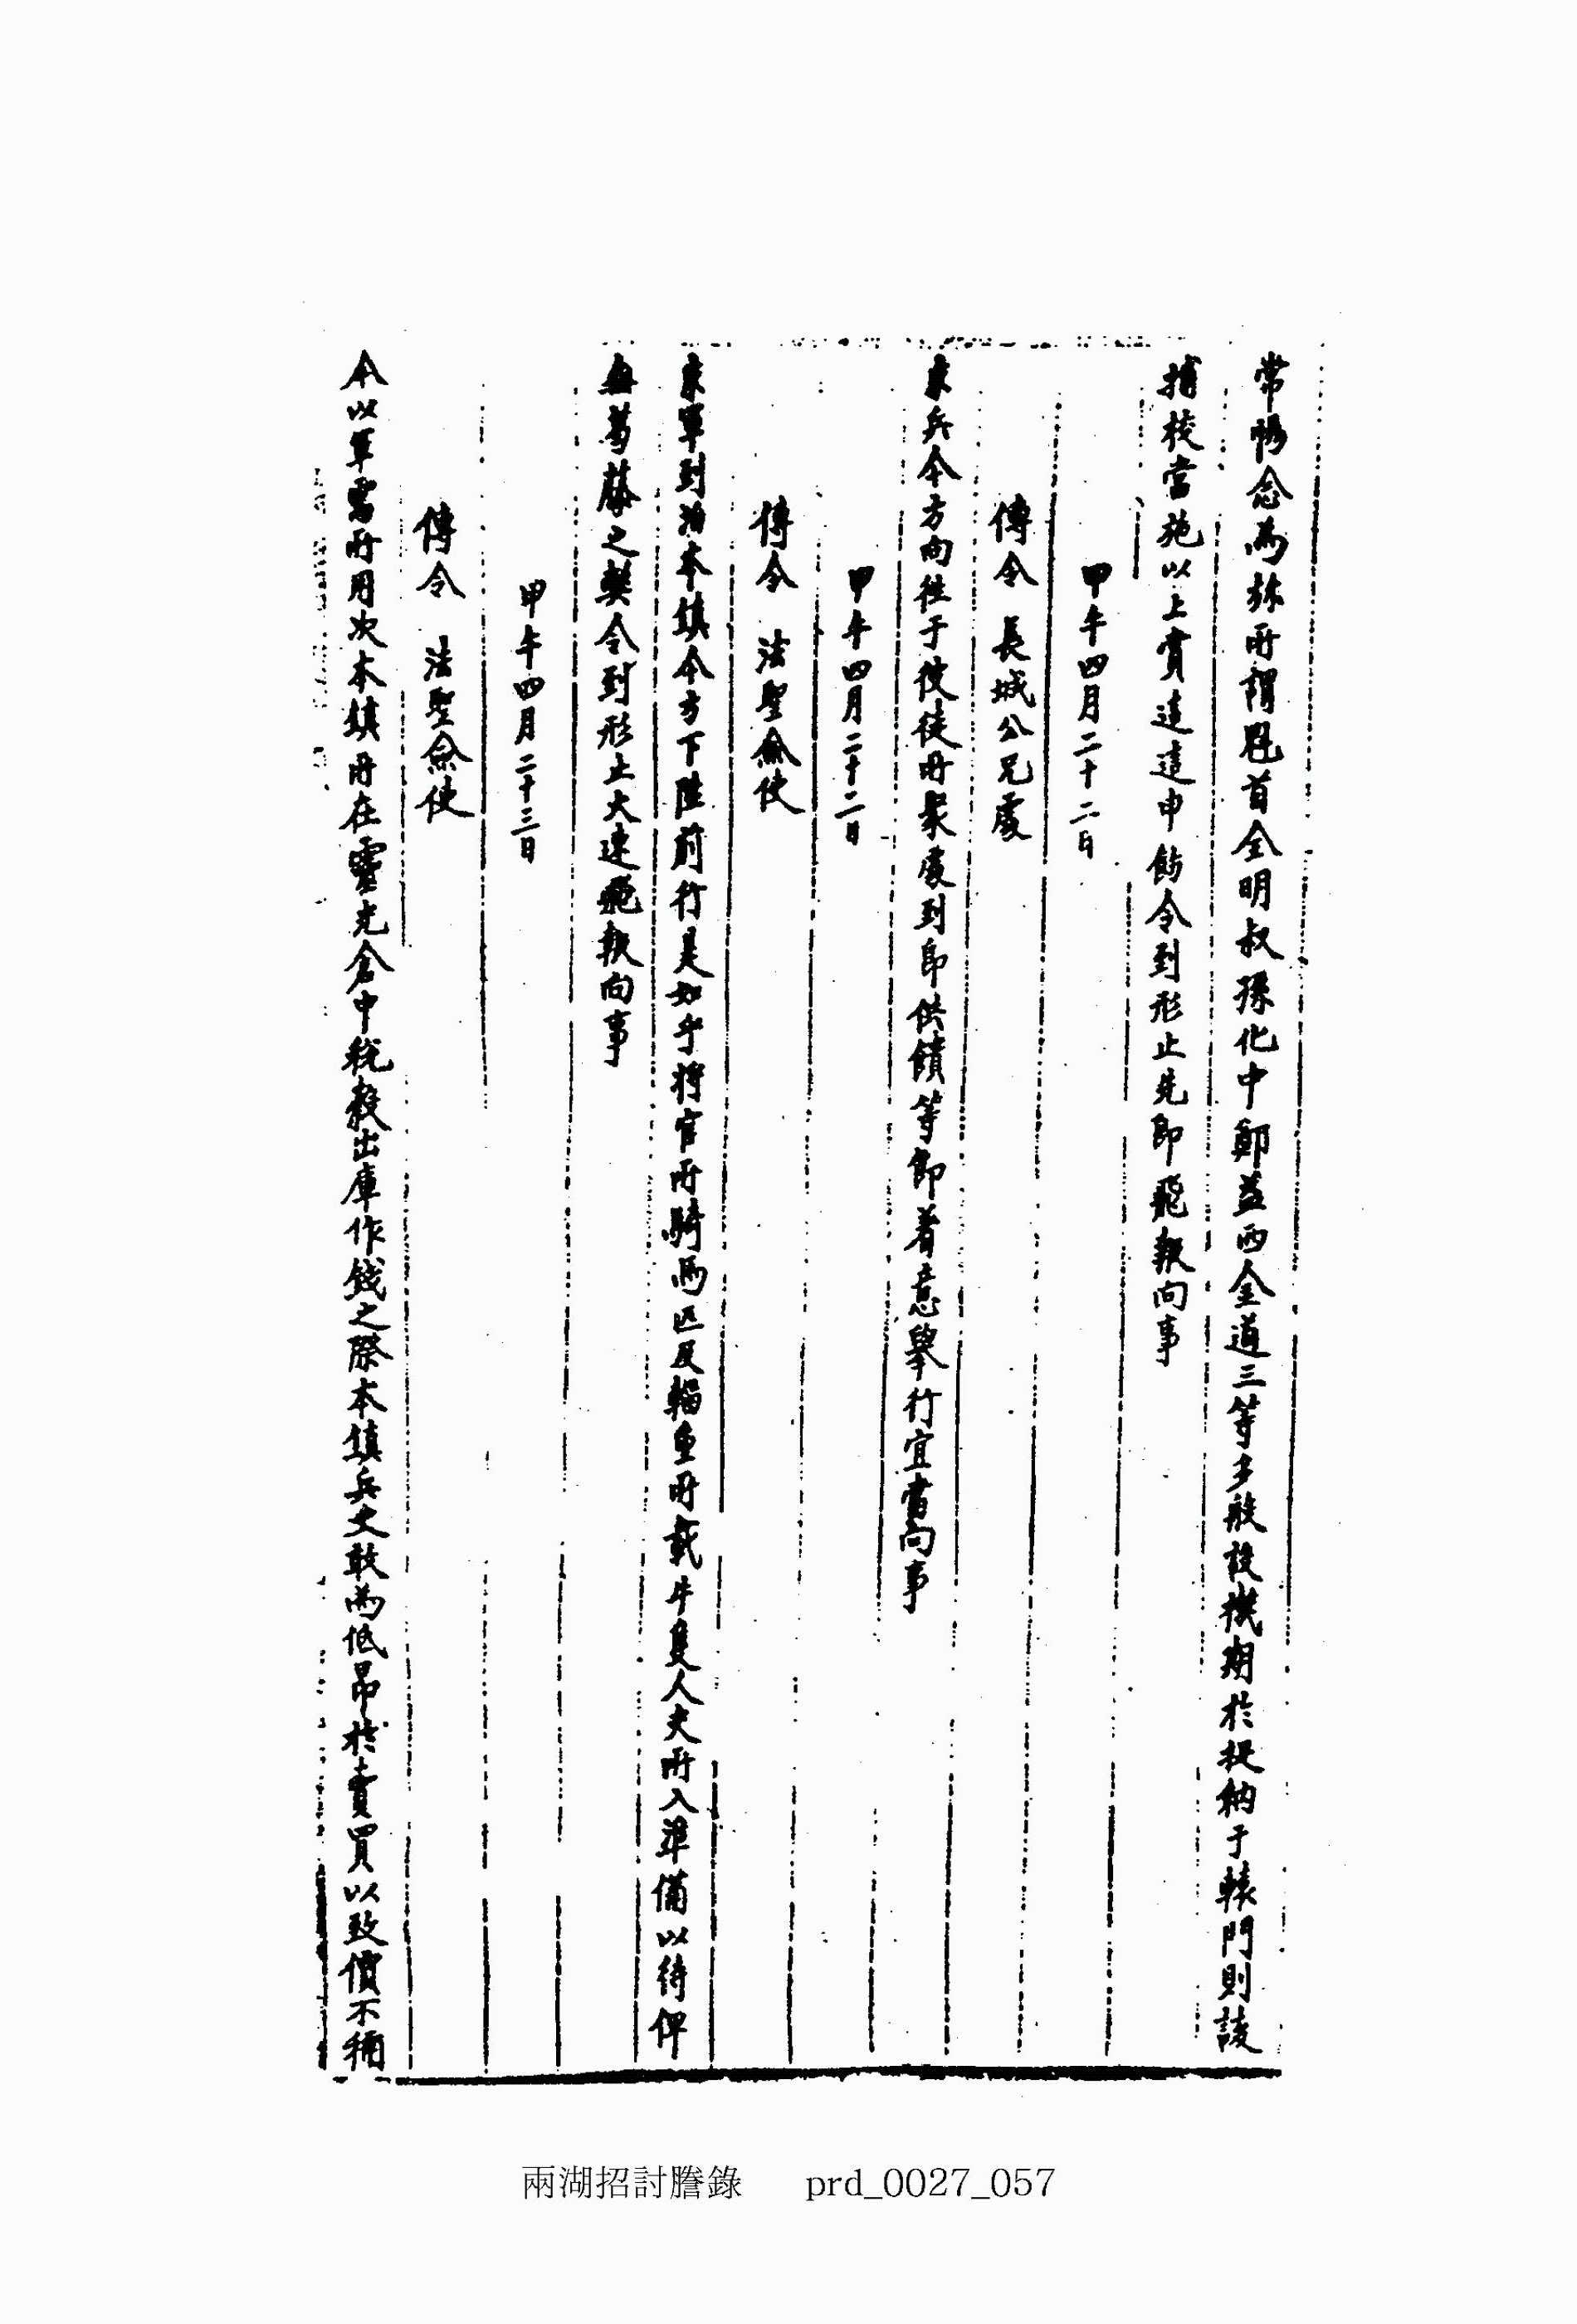 常惕念爲旀所謂魁首全明叔孫化中鄭益西金道三等多般設機期於捉納于轅門則該
捕校當施以上賞這這申飭令到形止先卽飛報向事
甲午四月二十二日
傳令 長城公兄處
京兵今方向往于彼徒所聚處到卽供饋等節着意擧行宜當向事
甲午四月二十二日
傳令 法聖僉使
京軍到泊本鎭今方下陸前行是如乎將官所騎馬匹及輜重所載牛隻人夫所入準備以待俾
無葛藤之獘令到形止大速飛報向事
甲午四月二十三日
傳令 法聖僉使
今以軍需所用次本鎭所在靈光倉中稅穀出庫作錢之際本鎭兵丈敢爲低昂於賣買以致價不稱